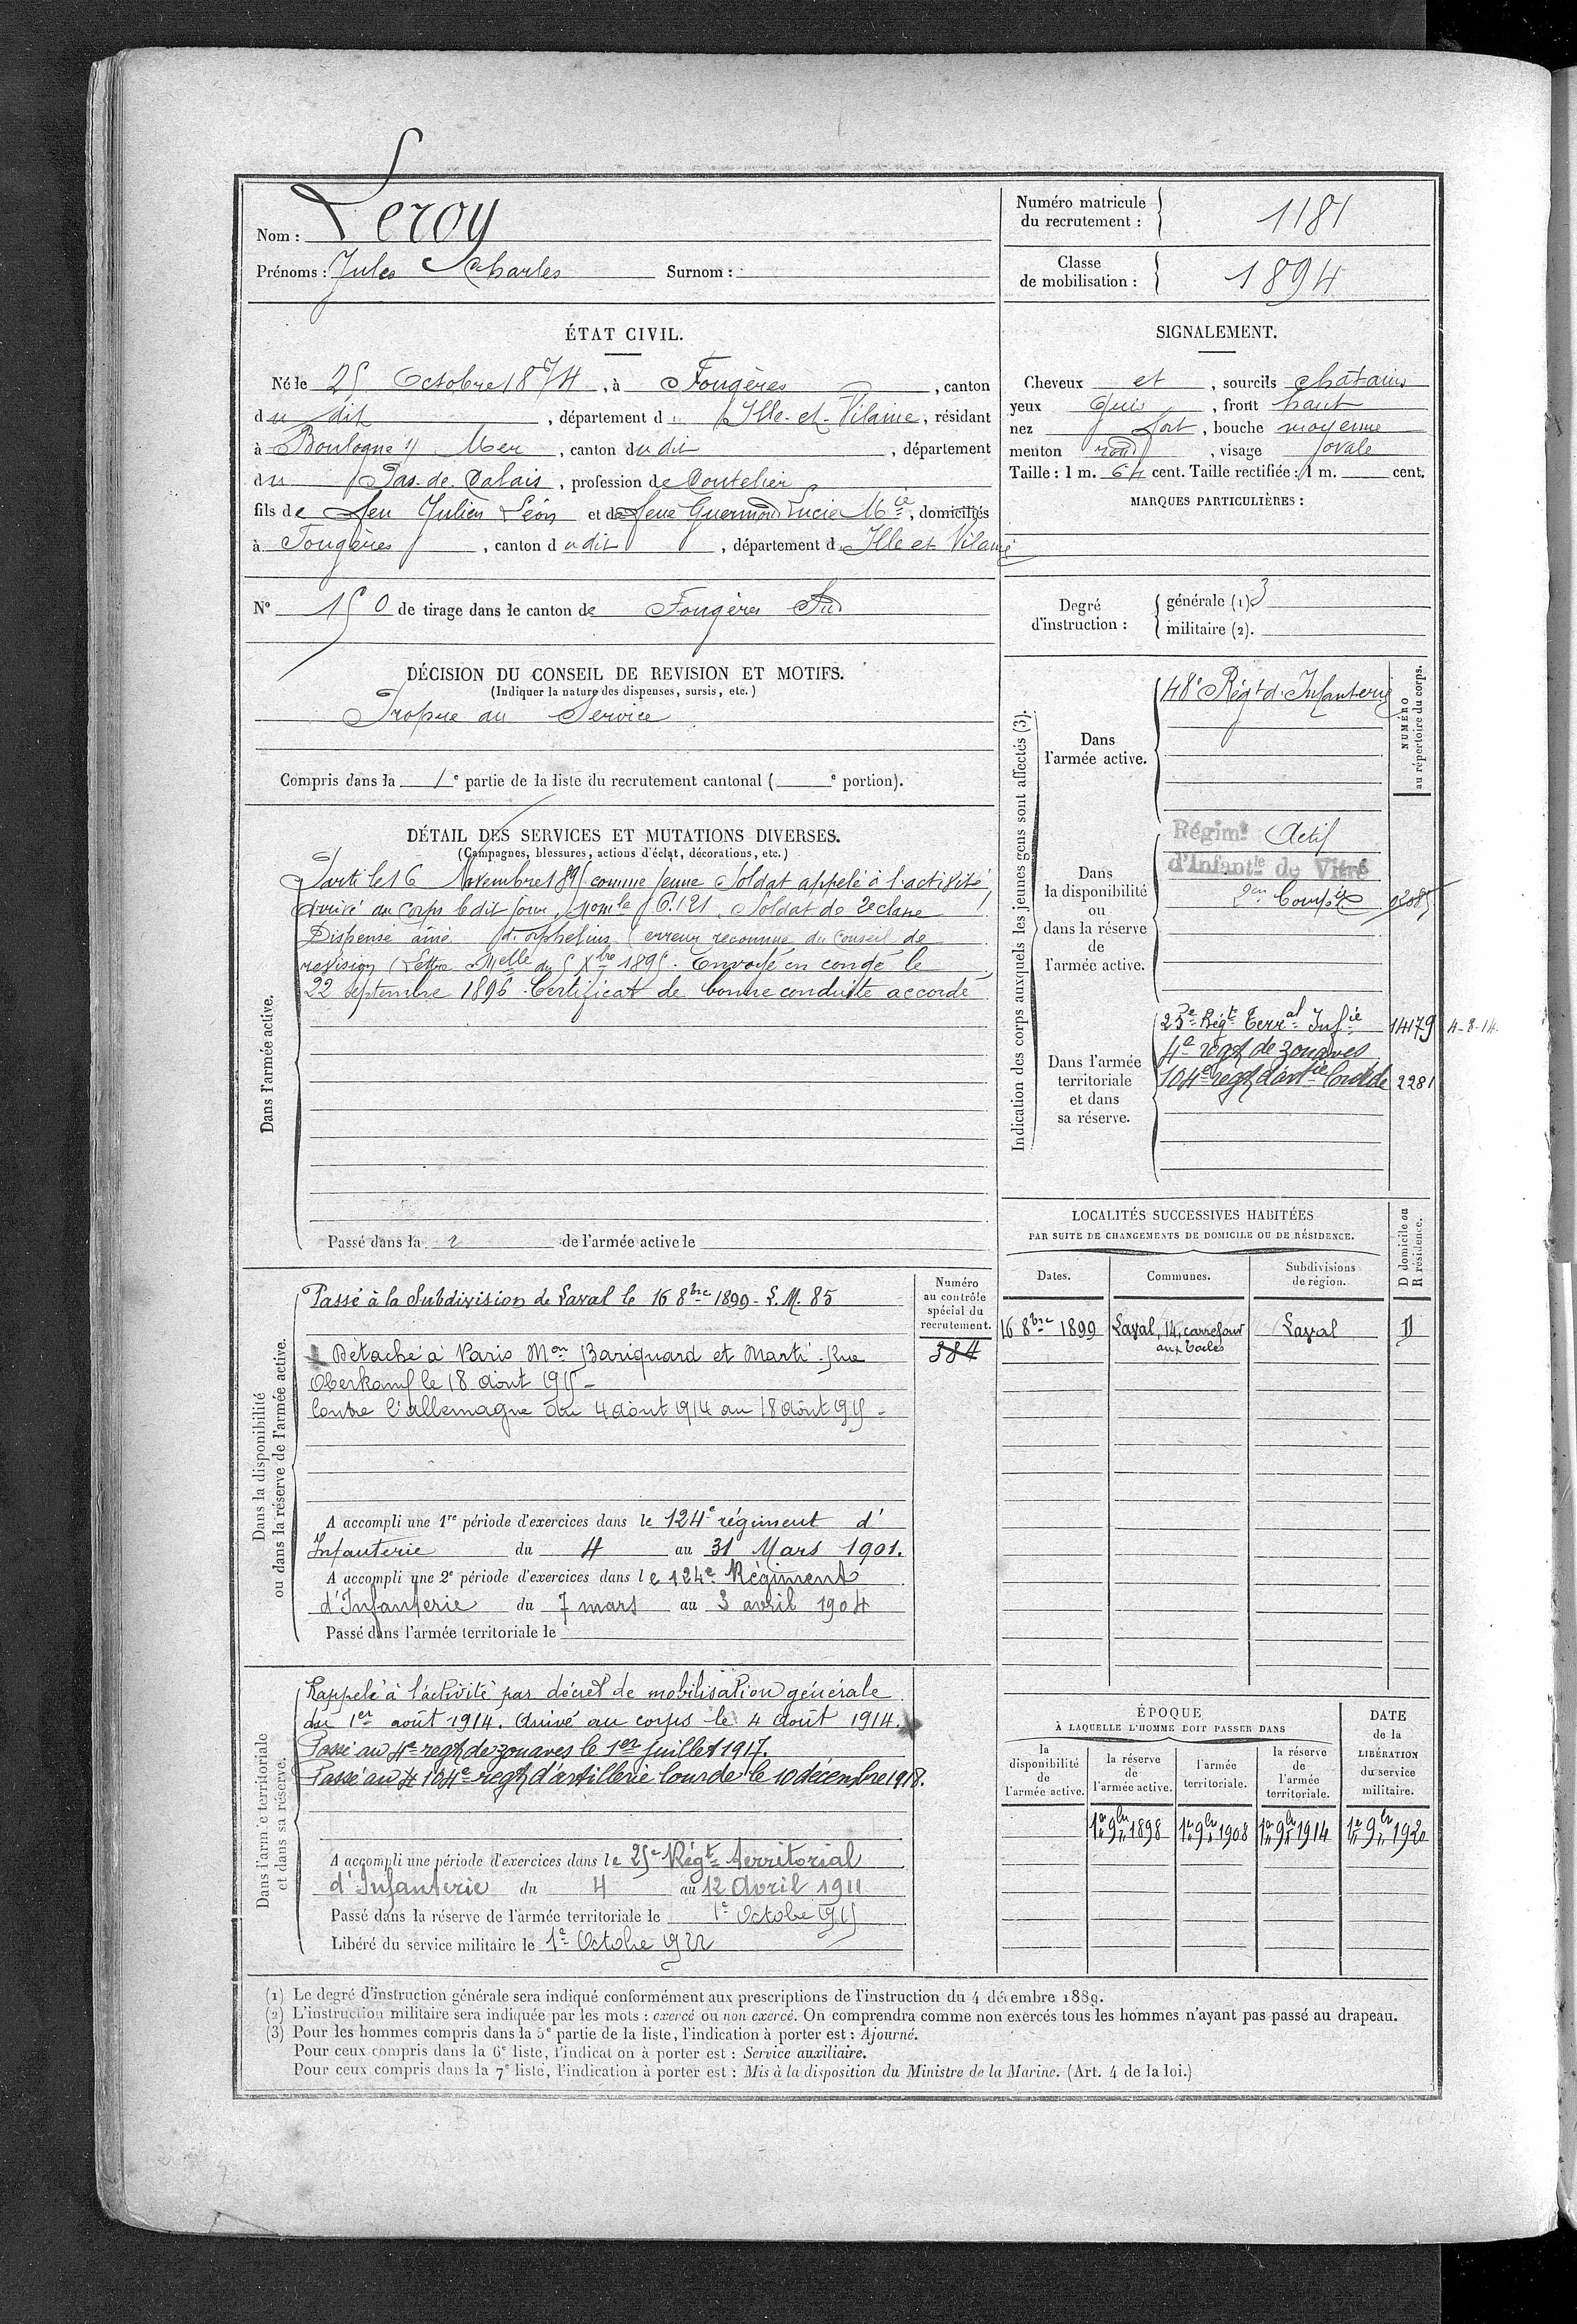 Nom : Leroy
Prénoms : Jules Charles Surnom :
Numéro matricule
du recrutement : 1181
Classe
de mobilisation : 1894
ÉTAT CIVIL.
Né le 25 Octobre 1874, à Fougères, canton
du dit, département d Ille-et-Vilaine, résidant
à Boulogne s/ Mer, canton du dit, département
du Pas-de-Calais, profession de Coutelier
fils de feu Julien Léon et de feue Guermond Lucie Mie, domiciliés
à Fougères, canton du dit, département d Ille et Vilaine
N° 150 de tirage dans le canton de Fougères Sud
SIGNALEMENT.
Cheveux et, sourcils chatains
yeux Gris, front haut
nez fort, bouche moyenne
menton rond, visage ovale
Taille : 1 m. 64 cent. Taille rectifiée : 1 m. cent.
MARQUES PARTICULIÈRES :
Degré
d'instruction :
générale (1) 3
militaire (2).
DÉCISION DU CONSEIL DE REVISION ET MOTIFS.
(Indiquer la nature des dispenses, sursis, etc.)
Propre au Service
Compris dans la 1e partie de la liste du recrutement cantonal ( e portion).
DÉTAIL DES SERVICES ET MUTATIONS DIVERSES.
(Campagnes, blessures, actions d'éclat, décorations, etc.)
Dans l'armée active.
Parti le 16 Novembre 1895 comme Jeune Soldat appelé à l'activité,
Arrivé au Corps le dit jour, Mon le 6.121. Soldat de 2e classe
Dispensé aîné d'orphelins (erreur reconnue du Conseil de
revision (Lettre Melle du 5 Xbre 1895. Envoyé en congé le
22 Septembre 1896. Certificat de bonne conduite accordé
Passé dans la r de l'armée active le
Indication des corps auxquels les jeunes gens sont affectés (3).
NUMÉRO
au répertoire du corps.
Dans
l'armée active.
48e Régt d'Infanterie
Dans
la disponibilité
ou
dans la réserve
de
l'armée active.
Régimt Actif
d'Infantie de Vitré
Dans l'armée
territoriale
et dans
sa réserve.
25e Régt Terral Infie 14179 4-8-14.
4e regt de zouaves
104e regt d'artie lourde 2281
LOCALITÉS SUCCESSIVES HABITÉES
PAR SUITE DE CHANGEMENTS DE DOMICILE OU DE RÉSIDENCE.
D domicile ou
R résidence.
Dates. Communes. Subdivisions
de région.
16 8bre 1899 Laval, 14, carrefour
aux Toiles Laval D
Dans la disponibilité
ou dans la réserve de l'armée active.
Numéro
au contrôle
spécial du
recrutement.
384
Passé à la Subdivision de Laval le 16 8bre 1899 - L.M. 85
Détaché à Paris Mon Bariquard et Marti. Rue
Oberkamf le 18 août 1915 -
Contre l'allemagne du 4 août 1914 au 18 août 1915 -
A accompli une 1re période d'exercices dans le 124e régiment d'
Infanterie du 4 au 31 Mars 1901.
A accompli une 2e période d'exercices dans le 124e Régiment
d'Infanterie du 7 mars au 3 avril 1904
Passé dans l'armée territoriale le
Dans l'armée territoriale
et dans sa réserve.
Rappelé à l'activité par décret de mobilisation générale
du 1er août 1914. Arrivé au corps le 4 août 1914.
Passé au 4e regt de zouaves le 1er juillet 1917.
Passé au 104e regt d'artillerie lourde le 10 décembre 1918.
A accompli une période d'exercices dans le 25e Régt territorial
d'Infanterie du 4 au 12 Avril 1911
Passé dans la réserve de l'armée territoriale le 1e Octobe 1915
Libéré du service militaire le 1e Octobe 1922
ÉPOQUE
À LAQUELLE L'HOMME DOIT PASSER DANS
DATE
de la
LIBÉRATION
du service
militaire.
la
disponibilité
de
l'armée active.
la réserve
de
l'armée active.
l'armée
territoriale.
la réserve
de
l'armée
territoriale.
1er 9bre 1898 1er 9bre 1908 1er 9bre 1914 1er 9bre 1920
(1) Le degré d'instruction générale sera indiqué conformément aux prescriptions de l'instruction du 4 décembre 1889.
(2) L'instruction militaire sera indiquée par les mots : exercé ou non exercé. On comprendra comme non exercés tous les hommes n'ayant pas passé au drapeau.
(3) Pour les hommes compris dans la 5e partie de la liste, l'indication à porter est : Ajourné.
Pour ceux compris dans la 6e liste, l'indicat on à porter est : Service auxiliaire.
Pour ceux compris dans la 7e liste, l'indication à porter est : Mis à la disposition du Ministre de la Marine. (Art. 4 de la loi.)